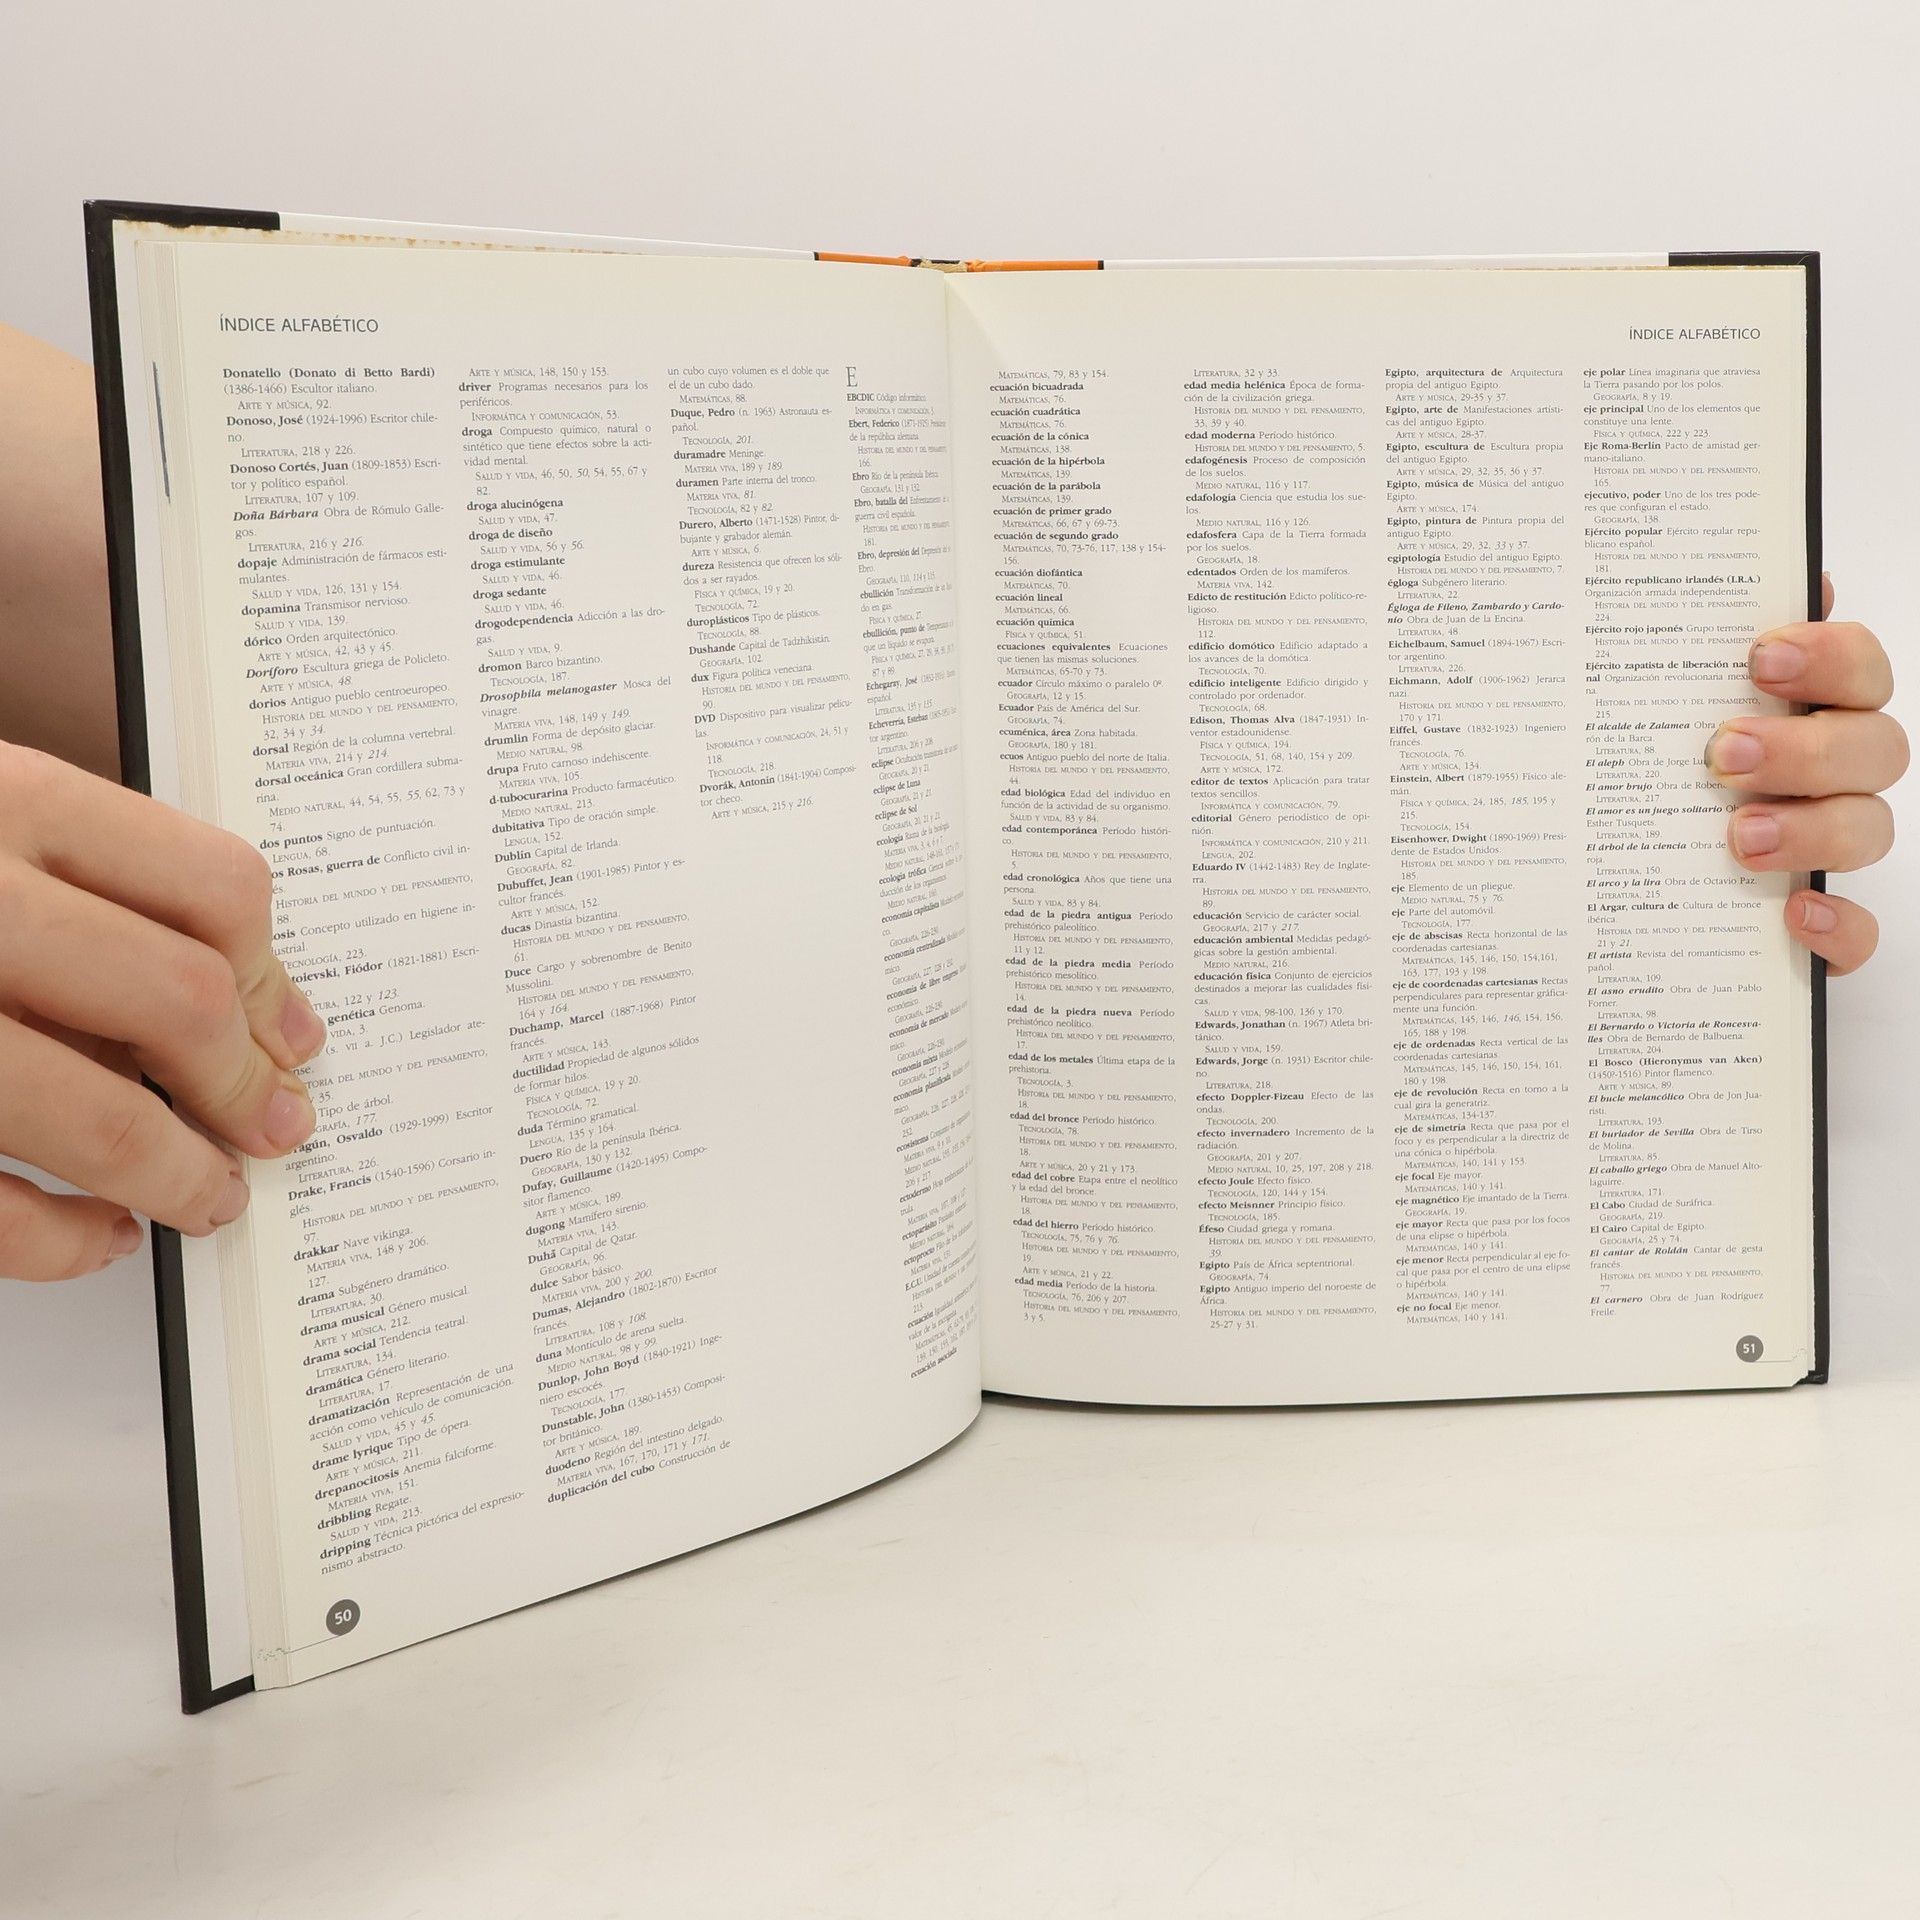 ÍNDICE ALFABÉTICO
Donatello (Donato di Betto Bardi)
(1386-1466) Escultor italiano.
ARTE Y MÚSICA, 92.
Donoso, José (1924-1996) Escritor chile-
no.
LITERATURA, 218 y 226.
Donoso Cortés, Juan (1809-1853) Escri-
tor y político español.
LITERATURA, 107 y 109.
Doña Bárbara Obra de Rómulo Galle-
gos.
LITERATURA, 216 y 216.
dopaje Administración de fármacos esti-
mulantes.
SALUD Y VIDA, 126, 131 y 154.
dopamina Transmisor nervioso.
SALUD Y VIDA, 139.
dórico Orden arquitectónico.
ARTE Y MÚSICA, 42, 43 y 45.
Doríforo Escultura griega de Policleto.
ARTE Y MÚSICA, 48.
dorios Antiguo pueblo centroeuropeo.
HISTORIA DEL MUNDO Y DEL PENSAMIENTO,
32, 34 y 34.
dorsal Región de la columna vertebral.
MATERIA VIVA, 214 y 214.
dorsal oceánica Gran cordillera subma-
rina.
MEDIO NATURAL, 44, 54, 55, 55, 62, 73 y
74.
dos puntos Signo de puntuación.
LENGUA, 68.
os Rosas, guerra de Conflicto civil in-
és.
HISTORIA DEL MUNDO Y DEL PENSAMIENTO,
88.
osis Concepto utilizado en higiene in-
ustrial.
TECNOLOGÍA, 223.
toievski, Fiódor (1821-1881) Escri-
o.
TURA, 122 y 123.
genética Genoma.
VIDA, 3.
(s. VII a. J.C.) Legislador ate-
nse.
TORIA DEL MUNDO Y DEL PENSAMIENTO,
y 35.
Tipo de árbol.
OGRAFÍA, 177.
ragún, Osvaldo (1929-1999) Escritor
argentino.
LITERATURA, 226.
Drake, Francis (1540-1596) Corsario in-
glés.
HISTORIA DEL MUNDO Y DEL PENSAMIENTO,
97.
drakkar Nave vikinga.
MATERIA VIVA, 148 y 206.
127.
drama Subgénero dramático.
LITERATURA, 30.
drama musical Género musical.
ARTE Y MÚSICA, 212.
drama social Tendencia teatral.
LITERATURA, 134.
dramática Género literario.
LITERATURA, 17.
dramatización Representación de una
acción como vehículo de comunicación.
SALUD Y VIDA, 45 y 45.
drame lyrique Tipo de ópera.
ARTE Y MÚSICA, 211.
drepanocitosis Anemia falciforme.
MATERIA VIVA, 151.
dribbling Regate.
SALUD Y VIDA, 213.
dripping Técnica pictórica del expresio-
nismo abstracto.
ARTE Y MÚSICA, 148, 150 y 153.
driver Programas necesarios para los
periféricos.
INFORMÁTICA Y COMUNICACIÓN, 53.
droga Compuesto químico, natural o
sintético que tiene efectos sobre la acti-
vidad mental.
SALUD Y VIDA, 46, 50, 50, 54, 55, 67 y
82.
droga alucinógena
SALUD Y VIDA, 47.
droga de diseño
SALUD Y VIDA, 56 y 56.
droga estimulante
SALUD Y VIDA, 46.
droga sedante
SALUD Y VIDA, 46.
drogodependencia Adicción a las dro-
gas.
SALUD Y VIDA, 9.
dromon Barco bizantino.
TECNOLOGÍA, 187.
Drosophila melanogaster Mosca del
vinagre.
MATERIA VIVA, 148, 149 y 149.
drumlin Forma de depósito glaciar.
MEDIO NATURAL, 98.
drupa Fruto carnoso indehiscente.
MATERIA VIVA, 105.
d-tubocurarina Producto farmacéutico.
MEDIO NATURAL, 213.
dubitativa Tipo de oración simple.
LENGUA, 152.
Dublín Capital de Irlanda.
GEOGRAFÍA, 82.
Dubuffet, Jean (1901-1985) Pintor y es-
cultor francés.
ARTE Y MÚSICA, 152.
ducas Dinastía bizantina.
HISTORIA DEL MUNDO Y DEL PENSAMIENTO,
61.
Duce Cargo y sobrenombre de Benito
Mussolini.
HISTORIA DEL MUNDO Y DEL PENSAMIENTO,
164 y 164.
Duchamp, Marcel (1887-1968) Pintor
francés.
ARTE Y MÚSICA, 143.
ductilidad Propiedad de algunos sólidos
de formar hilos.
FÍSICA Y QUÍMICA, 19 y 20.
TECNOLOGÍA, 72.
duda Término gramatical.
LENGUA, 135 y 164.
Duero Río de la península Ibérica.
GEOGRAFÍA, 130 y 132.
Dufay, Guillaume (1420-1495) Compo-
sitor flamenco.
ARTE Y MÚSICA, 189.
dugong Mamífero sirenio.
MATERIA VIVA, 143.
Duhã Capital de Qatar.
GEOGRAFÍA, 96.
dulce Sabor básico.
MATERIA VIVA, 200 y 200.
Dumas, Alejandro (1802-1870) Escritor
francés.
LITERATURA, 108 y 108.
duna Montículo de arena suelta.
MEDIO NATURAL, 98 y 99.
Dunlop, John Boyd (1840-1921) Inge-
niero escocés.
TECNOLOGÍA, 177.
Dunstable, John (1380-1453) Composi-
tor británico.
ARTE Y MÚSICA, 189.
duodeno Región del intestino delgado.
MATERIA VIVA, 167, 170, 171 y 171.
duplicación del cubo Construcción de
un cubo cuyo volumen es el doble que
el de un cubo dado.
MATEMÁTICAS, 88.
Duque, Pedro (n. 1963) Astronauta es-
pañol.
TECNOLOGÍA, 201.
duramadre Meninge.
MATERIA VIVA, 189 y 189.
duramen Parte interna del tronco.
MATERIA VIVA, 81.
TECNOLOGÍA, 82 y 82.
Durero, Alberto (1471-1528) Pintor, di-
bujante y grabador alemán.
ARTE Y MÚSICA, 6.
dureza Resistencia que ofrecen los sóli-
dos a ser rayados.
FÍSICA Y QUÍMICA, 19 y 20.
TECNOLOGÍA, 72.
duroplásticos Tipo de plásticos.
TECNOLOGÍA, 88.
Dushande Capital de Tadzhikistán.
GEOGRAFÍA, 102.
dux Figura política veneciana.
HISTORIA DEL MUNDO Y DEL PENSAMIENTO,
90.
DVD Dispositivo para visualizar pelícu-
las.
INFORMÁTICA Y COMUNICACIÓN, 24, 51 y
118.
TECNOLOGÍA, 218.
Dvorák, Antonin (1841-1904) Composi-
tor checo.
ARTE Y MÚSICA, 215 y 216.
E
EBCDIC Código informático.
INFORMÁTICA Y COMUNICACIÓN,
Ebert, Federico (1871-1925)
de la república alemana.
HISTORIA DEL MUNDO Y DEL PENSAMIENTO,
166.
Ebro Río de la península Ibérica.
GEOGRAFÍA, 131 y 132.
Ebro, batalla del Enfrentamiento
guerra civil española.
HISTORIA DEL MUNDO Y DEL
181.
Ebro, depresión del
Ebro.
GEOGRAFÍA, 110, 114 y 115.
ebullición Transformación de
do en gas.
FÍSICA Y QUÍMICA, 27.
ebullición, punto de
que un líquido se evapora.
FÍSICA Y QUÍMICA,
87 y 89.
Echegaray, José
español.
LITERATURA, 135 y 135.
Echeverría, Esteban
tor argentino.
LITERATURA, 206 y 208.
eclipse Ocultación
GEOGRAFÍA, 20 y 21.
eclipse de Luna
GEOGRAFÍA, 21 y 21.
eclipse de Sol
GEOGRAFÍA, 20, 21 y 21.
ecología Rama de la biología
ecología trófica
ducción de los organismos
MEDIO NATURAL, 160.
economía capitalista
co.
GEOGRAFÍA, 226-230.
economía centralizada
mico.
economía de libre empresa
económico.
GEOGRAFÍA, 226-230.
economía de mercado
mico.
GEOGRAFÍA, 226-230.
economía mixta
economía planificada
mico.
232.
ecosistema
ectodermo
ectoparásito
ectoprocto
E.C.U.
213.
ecuación
valor de la incógnita.
ecuación asociada
50
ÍNDICE ALFABÉTICO
MATEMÁTICAS, 79, 83 y 154.
ecuación bicuadrada
MATEMÁTICAS, 76.
ecuación cuadrática
MATEMÁTICAS, 76.
ecuación de la cónica
MATEMÁTICAS, 138.
ecuación de la hipérbola
MATEMÁTICAS, 139.
ecuación de la parábola
MATEMÁTICAS, 139.
ecuación de primer grado
MATEMÁTICAS, 66, 67 y 69-73.
ecuación de segundo grado
MATEMÁTICAS, 70, 73-76, 117, 138 y 154-
156.
ecuación diofántica
MATEMÁTICAS, 70.
ecuación lineal
MATEMÁTICAS, 66.
ecuación química
FÍSICA Y QUÍMICA, 51.
ecuaciones equivalentes Ecuaciones
que tienen las mismas soluciones.
MATEMÁTICAS, 65-70 y 73.
ecuador Círculo máximo o paralelo 0º.
GEOGRAFÍA, 12 y 15.
Ecuador País de América del Sur.
GEOGRAFÍA, 74.
ecuménica, área Zona habitada.
GEOGRAFÍA, 180 y 181.
ecuos Antiguo pueblo del norte de Italia.
HISTORIA DEL MUNDO Y DEL PENSAMIENTO,
44.
edad biológica Edad del individuo en
función de la actividad de su organismo.
SALUD Y VIDA, 83 y 84.
edad contemporánea Período históri-
co.
HISTORIA DEL MUNDO Y DEL PENSAMIENTO,
5.
edad cronológica Años que tiene una
persona.
SALUD Y VIDA, 83 y 84.
edad de la piedra antigua Período
prehistórico paleolítico.
HISTORIA DEL MUNDO Y DEL PENSAMIENTO,
11 y 12.
edad de la piedra media Período
prehistórico mesolítico.
HISTORIA DEL MUNDO Y DEL PENSAMIENTO,
14.
edad de la piedra nueva Período
prehistórico neolítico.
HISTORIA DEL MUNDO Y DEL PENSAMIENTO,
17.
edad de los metales Última etapa de la
prehistoria.
TECNOLOGÍA, 3.
HISTORIA DEL MUNDO Y DEL PENSAMIENTO,
18.
edad del bronce Período histórico.
TECNOLOGÍA, 78.
HISTORIA DEL MUNDO Y DEL PENSAMIENTO,
18.
ARTE Y MÚSICA, 20 y 21 y 173.
edad del cobre Etapa entre el neolítico
y la edad del bronce.
HISTORIA DEL MUNDO Y DEL PENSAMIENTO,
18.
edad del hierro Período histórico.
TECNOLOGÍA, 75, 76 y 76.
HISTORIA DEL MUNDO Y DEL PENSAMIENTO,
19.
ARTE Y MÚSICA, 21 y 22.
edad media Período de la historia.
TECNOLOGÍA, 76, 206 y 207.
HISTORIA DEL MUNDO Y DEL PENSAMIENTO,
3 y 5.
LITERATURA, 32 y 33.
edad media helénica Época de forma-
ción de la civilización griega.
HISTORIA DEL MUNDO Y DEL PENSAMIENTO,
33, 39 y 40.
edad moderna Período histórico.
HISTORIA DEL MUNDO Y DEL PENSAMIENTO, 5.
edafogénesis Proceso de composición
de los suelos.
MEDIO NATURAL, 116 y 117.
edafología Ciencia que estudia los sue-
los.
MEDIO NATURAL, 116 y 126.
edafosfera Capa de la Tierra formada
por los suelos.
GEOGRAFÍA, 18.
edentados Orden de los mamíferos.
MATERIA VIVA, 142.
Edicto de restitución Edicto político-re-
ligioso.
HISTORIA DEL MUNDO Y DEL PENSAMIENTO,
112.
edificio domótico Edificio adaptado a
los avances de la domótica.
TECNOLOGÍA, 70.
edificio inteligente Edificio dirigido y
controlado por ordenador.
TECNOLOGÍA, 68.
Edison, Thomas Alva (1847-1931) In-
ventor estadounidense.
FÍSICA Y QUÍMICA, 194.
TECNOLOGÍA, 51, 68, 140, 154 y 209.
ARTE Y MÚSICA, 172.
editor de textos Aplicación para tratar
textos sencillos.
INFORMÁTICA Y COMUNICACIÓN, 79.
editorial Género periodístico de opi-
nión.
INFORMÁTICA Y COMUNICACIÓN, 210 y 211.
LENGUA, 202.
Eduardo IV (1442-1483) Rey de Inglate-
rra.
HISTORIA DEL MUNDO Y DEL PENSAMIENTO,
89.
educación Servicio de carácter social.
GEOGRAFÍA, 217 y 217.
educación ambiental Medidas pedagó-
gicas sobre la gestión ambiental.
MEDIO NATURAL, 216.
educación física Conjunto de ejercicios
destinados a mejorar las cualidades físi-
cas.
SALUD Y VIDA, 98-100, 136 y 170.
Edwards, Jonathan (n. 1967) Atleta bri-
tánico.
SALUD Y VIDA, 159.
Edwards, Jorge (n. 1931) Escritor chile-
no.
LITERATURA, 218.
efecto Doppler-Fizeau Efecto de las
ondas.
TECNOLOGÍA, 200.
efecto invernadero Incremento de la
radiación.
GEOGRAFÍA, 201 y 207.
MEDIO NATURAL, 10, 25, 197, 208 y 218.
efecto Joule Efecto físico.
TECNOLOGÍA, 120, 144 y 154.
efecto Meissner Principio físico.
TECNOLOGÍA, 185.
Éfeso Ciudad griega y romana.
HISTORIA DEL MUNDO Y DEL PENSAMIENTO,
39.
Egipto País de África septentrional.
GEOGRAFÍA, 74.
Egipto Antiguo imperio del noroeste de
África.
HISTORIA DEL MUNDO Y DEL PENSAMIENTO,
25-27 y 31.
Egipto, arquitectura de Arquitectura
propia del antiguo Egipto.
ARTE Y MÚSICA, 29-35 y 37.
Egipto, arte de Manifestaciones artísti-
cas del antiguo Egipto.
ARTE Y MÚSICA, 28-37.
Egipto, escultura de Escultura propia
del antiguo Egipto.
ARTE Y MÚSICA, 29, 32, 35, 36 y 37.
Egipto, música de Música del antiguo
Egipto.
ARTE Y MÚSICA, 174.
Egipto, pintura de Pintura propia del
antiguo Egipto.
ARTE Y MÚSICA, 29, 32, 33 y 37.
egiptología Estudio del antiguo Egipto.
HISTORIA DEL MUNDO Y DEL PENSAMIENTO, 7.
égloga Subgénero literario.
LITERATURA, 22.
Égloga de Fileno, Zambardo y Cardo-
nio Obra de Juan de la Encina.
LITERATURA, 48.
Eichelbaum, Samuel (1894-1967) Escri-
tor argentino.
LITERATURA, 226.
Eichmann, Adolf (1906-1962) Jerarca
nazi.
HISTORIA DEL MUNDO Y DEL PENSAMIENTO,
170 y 171.
Eiffel, Gustave (1832-1923) Ingeniero
francés.
TECNOLOGÍA, 76.
ARTE Y MÚSICA, 134.
Einstein, Albert (1879-1955) Físico ale-
mán.
FÍSICA Y QUÍMICA, 24, 185, 185, 195 y
215.
TECNOLOGÍA, 154.
Eisenhower, Dwight (1890-1969) Presi-
dente de Estados Unidos.
HISTORIA DEL MUNDO Y DEL PENSAMIENTO,
185.
eje Elemento de un pliegue.
MEDIO NATURAL, 75 y 76.
eje Parte del automóvil.
TECNOLOGÍA, 177.
eje de abscisas Recta horizontal de las
coordenadas cartesianas.
MATEMÁTICAS, 145, 146, 150, 154,161,
163, 177, 193 y 198.
eje de coordenadas cartesianas Rectas
perpendiculares para representar gráfica-
mente una función.
MATEMÁTICAS, 145, 146, 146, 154, 156,
165, 188 y 198.
eje de ordenadas Recta vertical de las
coordenadas cartesianas.
MATEMÁTICAS, 145, 146, 150, 154, 161,
180 y 198.
eje de revolución Recta en torno a la
cual gira la generatriz.
MATEMÁTICAS, 134-137.
eje de simetría Recta que pasa por el
foco y es perpendicular a la directriz de
una cónica o hipérbola.
MATEMÁTICAS, 140, 141 y 153.
eje focal Eje mayor.
MATEMÁTICAS, 140 y 141.
eje magnético Eje imantado de la Tierra.
GEOGRAFÍA, 19.
eje mayor Recta que pasa por los focos
de una elipse o hipérbola.
MATEMÁTICAS, 140 y 141.
eje menor Recta perpendicular al eje fo-
cal que pasa por el centro de una elipse
o hipérbola.
MATEMÁTICAS, 140 y 141.
eje no focal Eje menor.
MATEMÁTICAS, 140 y 141.
eje polar Línea imaginaria que atraviesa
la Tierra pasando por los polos.
GEOGRAFÍA, 8 y 19.
eje principal Uno de los elementos que
constituye una lente.
FÍSICA Y QUÍMICA, 222 y 223.
Eje Roma-Berlín Pacto de amistad ger-
mano-italiano.
HISTORIA DEL MUNDO Y DEL PENSAMIENTO,
165.
ejecutivo, poder Uno de los tres pode-
res que configuran el estado.
GEOGRAFÍA, 138.
Ejército popular Ejército regular repu-
blicano español.
HISTORIA DEL MUNDO Y DEL PENSAMIENTO,
181.
Ejército republicano irlandés (I.R.A.)
Organización armada independentista.
HISTORIA DEL MUNDO Y DEL PENSAMIENTO,
224.
Ejército rojo japonés Grupo terrorista.
HISTORIA DEL MUNDO Y DEL PENSAMIENTO,
224.
Ejército zapatista de liberación nac
nal Organización revolucionaria mexic
na.
HISTORIA DEL MUNDO Y DEL PENSAMIENTO,
215.
El alcalde de Zalamea Obra
rón de la Barca.
LITERATURA, 88.
El aleph Obra de Jorge Lu
LITERATURA, 220.
El amor brujo Obra de Rober
LITERATURA, 217.
El amor es un juego solitario Ob
Esther Tusquets.
LITERATURA, 189.
El árbol de la ciencia Obra de
roja.
LITERATURA, 150.
El arco y la lira Obra de Octavio Paz.
LITERATURA, 215.
El Argar, cultura de Cultura de bronce
ibérica.
HISTORIA DEL MUNDO Y DEL PENSAMIENTO,
21 y 21.
El artista Revista del romanticismo es-
pañol.
LITERATURA, 109.
El asno erudito Obra de Juan Pablo
Forner.
LITERATURA, 98.
El Bernardo o Victoria de Roncesva-
lles Obra de Bernardo de Balbuena.
LITERATURA, 204.
El Bosco (Hieronymus van Aken)
(1450?-1516) Pintor flamenco.
ARTE Y MÚSICA, 89.
El bucle melancólico Obra de Jon Jua-
risti.
LITERATURA, 193.
El burlador de Sevilla Obra de Tirso
de Molina.
LITERATURA, 85.
El caballo griego Obra de Manuel Alto-
laguirre.
LITERATURA, 171.
El Cabo Ciudad de Suráfrica.
GEOGRAFÍA, 219.
El Cairo Capital de Egipto.
GEOGRAFÍA, 25 y 74.
El cantar de Roldán Cantar de gesta
francés.
HISTORIA DEL MUNDO Y DEL PENSAMIENTO,
77.
El carnero Obra de Juan Rodríguez
Freile.
51